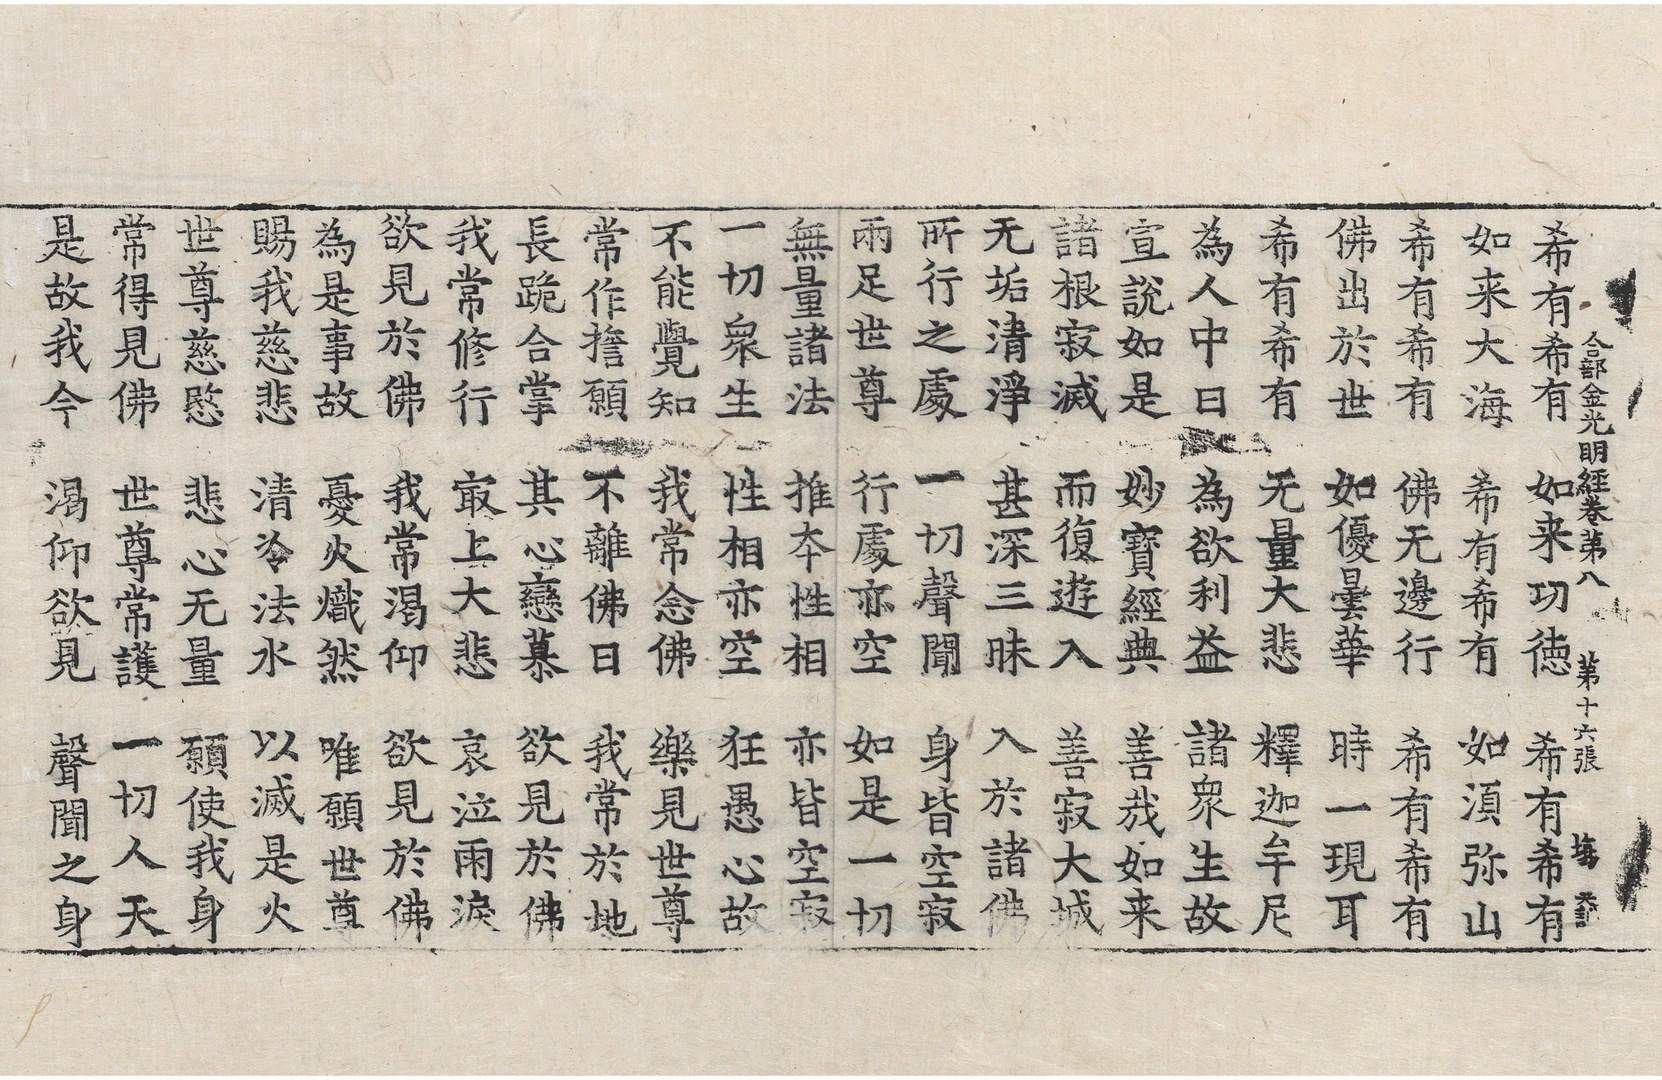 合部金光明經卷第八　第十六張
希有希有　如来功徳　希有希有
如来大海　希有希有　如湏弥山
希有希有　佛无邊行　希有希有
佛出於世　如優曇華　時一現耳
希有希有　无量大悲　釋迦牟尼
為人中日　為欲利益　諸衆生故
宣說如是　妙寶經典　善哉如来
諸根寂滅　而復遊入　善寂大城
无垢清淨　甚深三昧　入於諸佛
所行之處　一切聲聞　身皆空寂
兩足世尊　行處亦空　如是一切
無量諸法　推夲性相　亦皆空寂
一切衆生　性相亦空　狂愚心故
不能覺知　我常念佛　樂見世尊
常作擔願　不離佛日　我常於地
長跪合掌　其心戀慕　欲見於佛
我常修行　㝡上大悲　哀泣雨淚
欲見於佛　我常渴仰　欲見於佛
為是事故　憂火熾然　唯願世尊
賜我慈悲　清冷法水　以滅是火
世尊慈愍　悲心无量　願使我身
常得見佛　世尊常護　一切人天
是故我今　渴仰欲見　聲聞之身